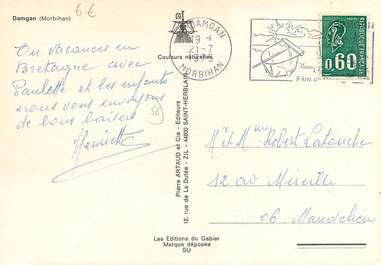 Damgan (Morbihan)
6€
Couleurs naturelles
DAMGAN
19-H
21-7
MORBIHAN
0,60
En vacances en
Bretagne avec
Paulette et les enfants
nous vous envoyons
de bons baisers
Henriette
56
Pierre ARTAUD et Cie - Editeurs
12, rue de La Dutée - ZIL - 44800 SAINT-HERBLAIN
Mr et Mme Robert Latouche
12 av Mireille
06 Mandelieu
Les Editions du Gabier
Marque déposée
SU